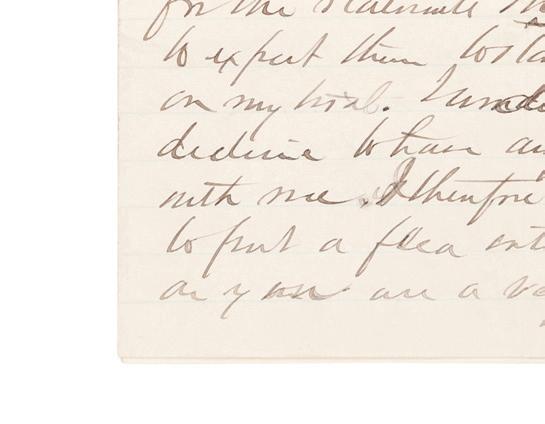 for the
to expect them
on my trial. I
decline to have
with me. I therefore
to put a flea
as you are a